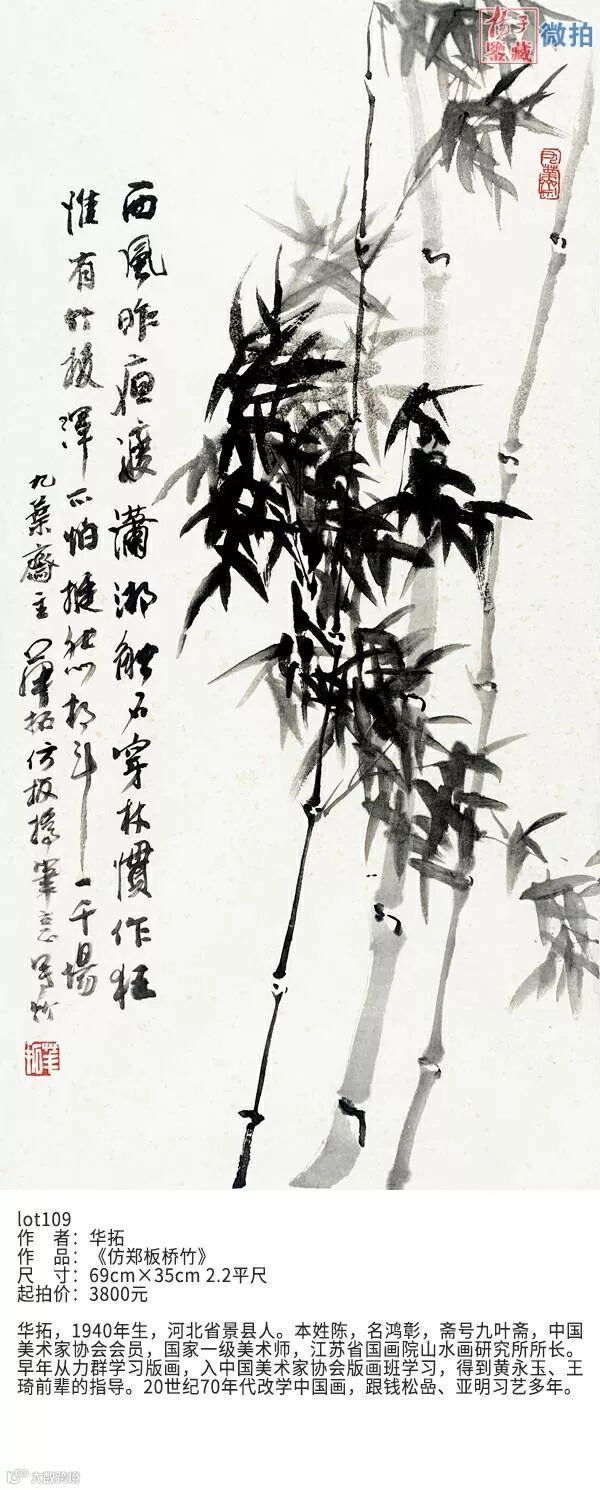 扬子
鉴藏
微拍
西风昨夜渡潇湘触石穿林惯作狂
惟有竹枝浑不怕挺然相斗一千场
九叶斋主华拓仿板桥笔意写竹
lot109
作 者：华拓
作 品：《仿郑板桥竹》
尺 寸：69cm×35cm 2.2平尺
起拍价：3800元
华拓，1940年生，河北省景县人。本姓陈，名鸿彰，斋号九叶斋，中国
美术家协会会员，国家一级美术师，江苏省国画院山水画研究所所长。
早年从力群学习版画，入中国美术家协会版画班学习，得到黄永玉、王
琦前辈的指导。20世纪70年代改学中国画，跟钱松嵒、亚明习艺多年。
大数跨境